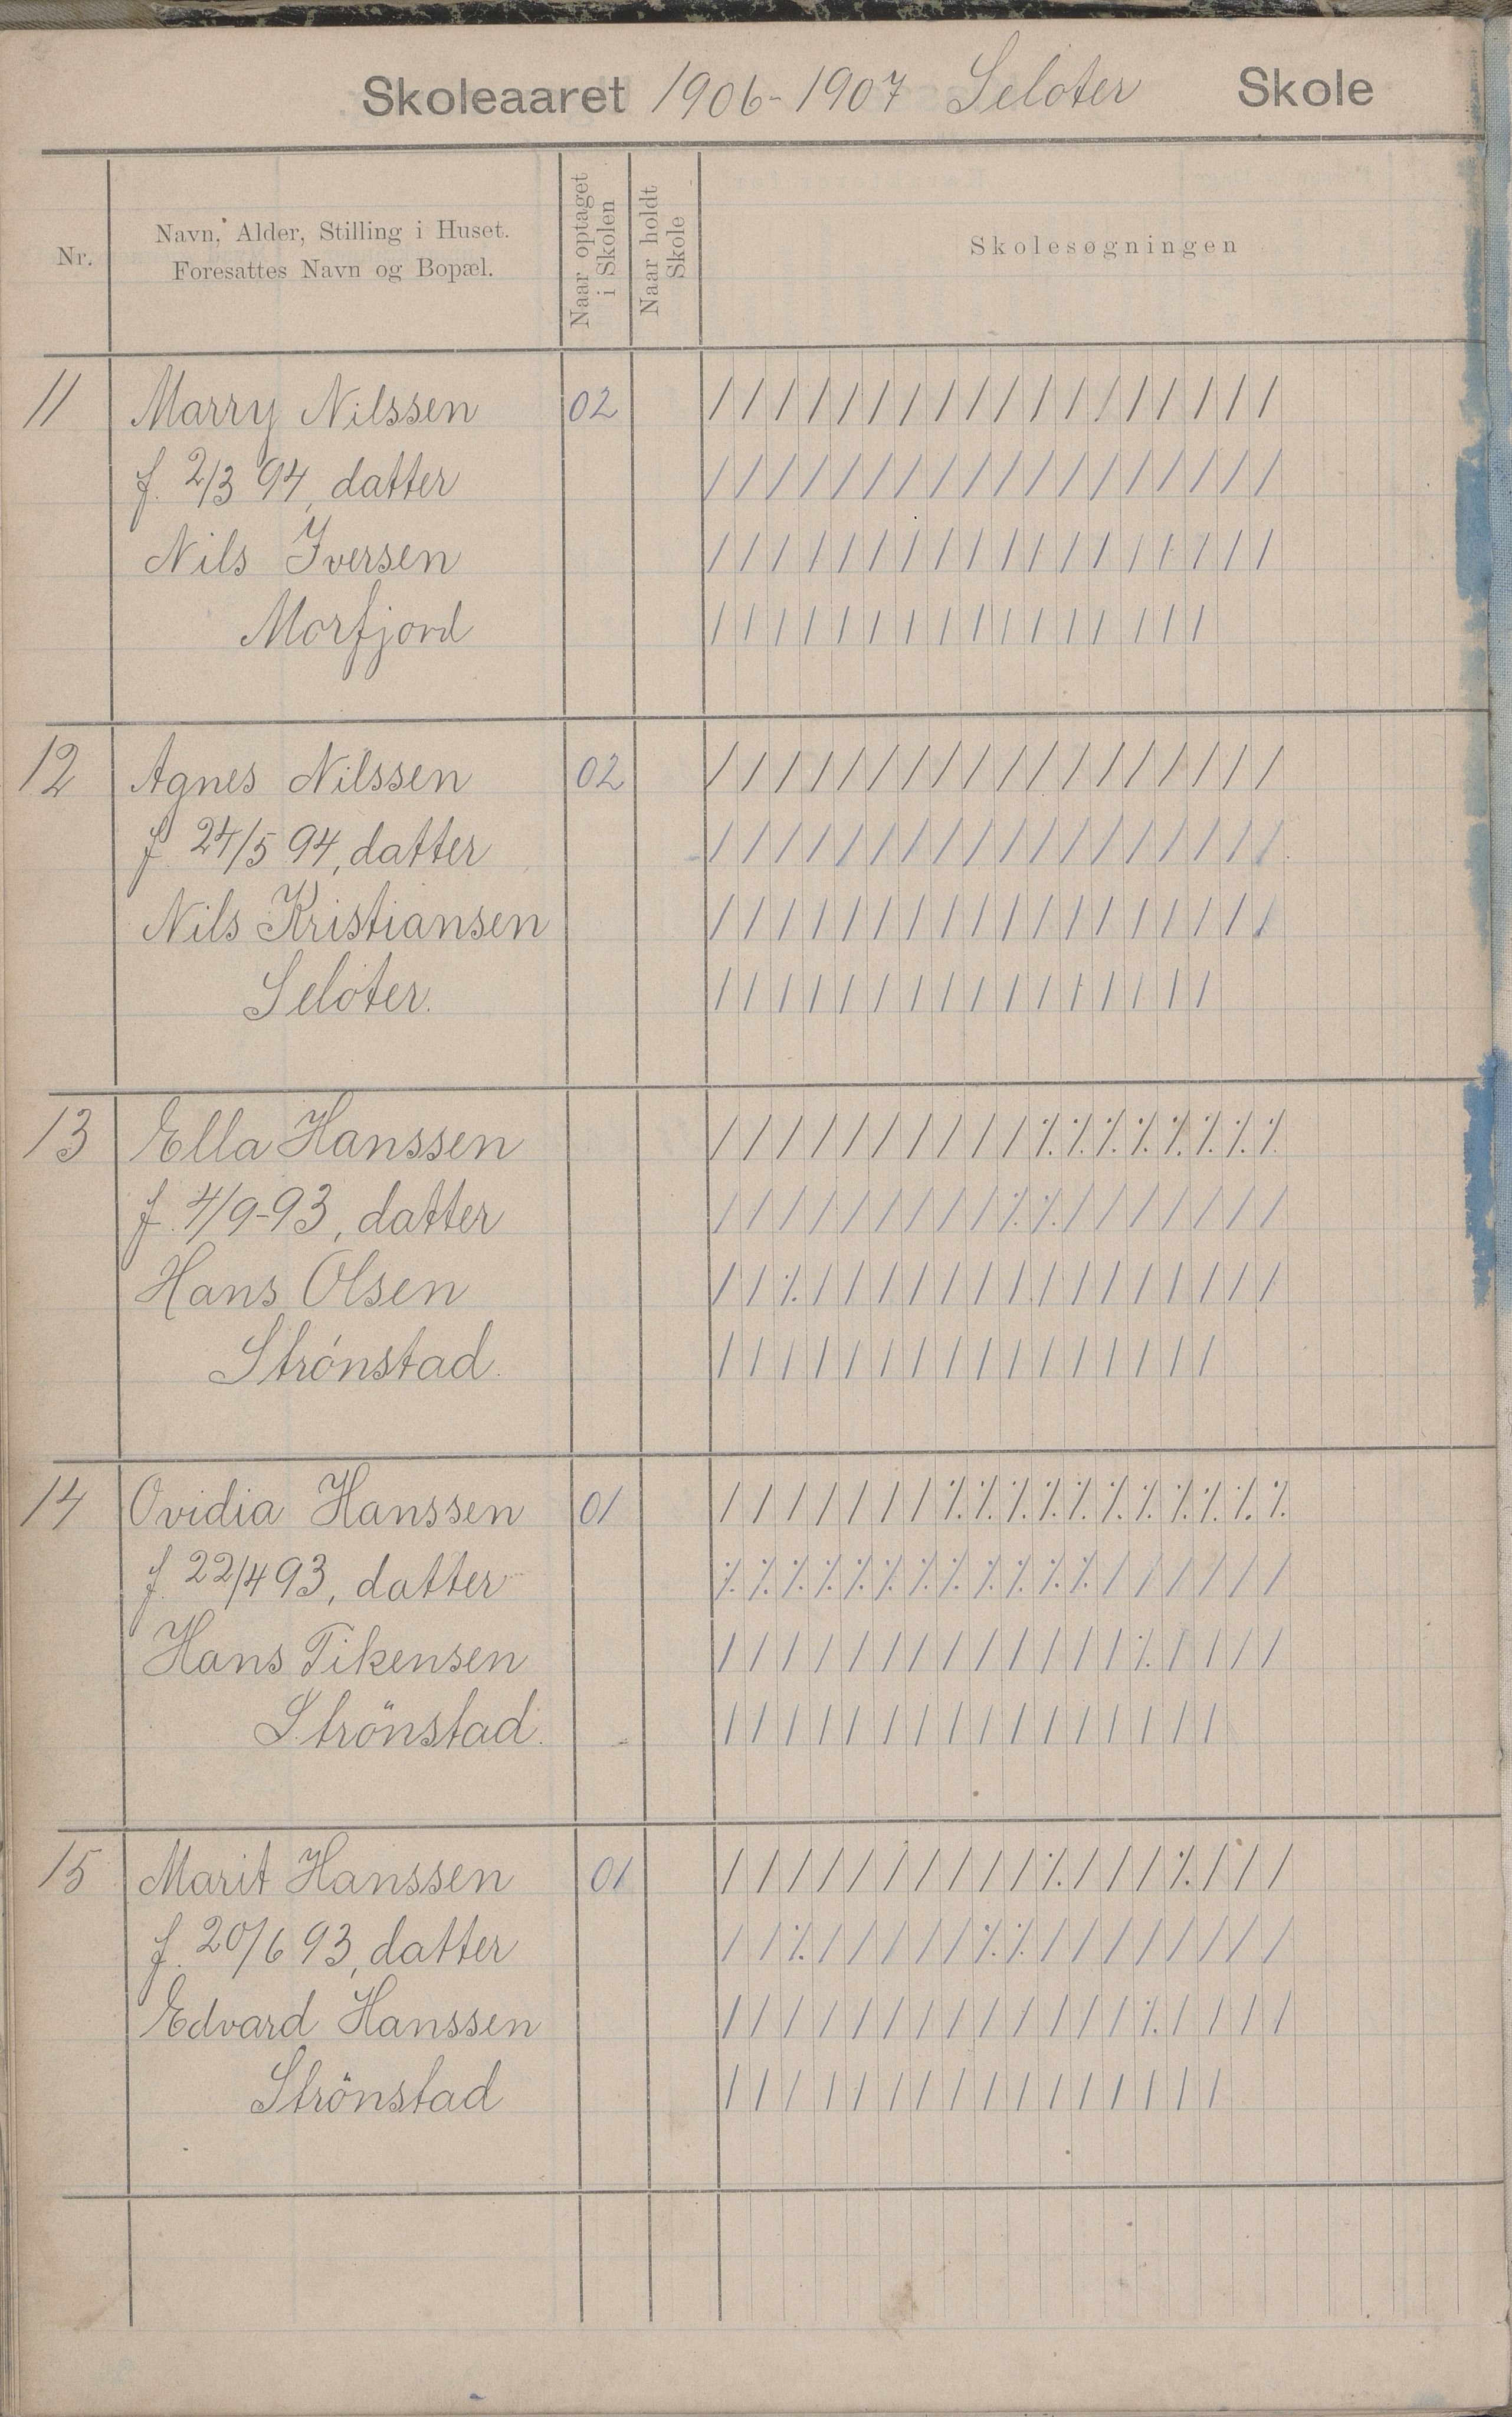 Skoleaaret 1906-1907 Seloter Skole
Nr.
Navn, Alder, Stilling i Huset.
Foresattes Navn og Bopæl.
Naar optaget
i Skolen
Naar holdt
Skole
Skolesøgningen
11 Marry Nilssen 02 / / / / / / / / / / / / / / / / / /
f. 2/3 94, datter / / / / / / / / / / / / / / / / / /
Nils Iversen / / / / / / / / / / / / / / / / / /
Morfjord / / / / / / / / / / / / / / / /
12 Agnes Nilssen 02 / / / / / / / / / / / / / / / / / /
f 24/5 94, datter / / / / / / / / / / / / / / / / / /
Nils Kristiansen / / / / / / / / / / / / / / / / / /
Seloter. / / / / / / / / / / / / / / / /
13 Ella Hanssen / / / / / / / / / / ⁒ ⁒ ⁒ ⁒ ⁒ ⁒ ⁒ ⁒
f. 4/9-93, datter / / / / / / / / / ⁒ ⁒ / / / / / / /
Hans Olsen / / ⁒ / / / / / / / / / / / / / / /
Strónstad. / / / / / / / / / / / / / / / /
14 Ovidia Hanssen 01 / / / / / / / ⁒ ⁒ ⁒ ⁒ ⁒ ⁒ ⁒ ⁒ ⁒ ⁒ ⁒
f. 22/4 93, datter ⁒ ⁒ ⁒ ⁒ ⁒ ⁒ ⁒ ⁒ ⁒ ⁒ ⁒ ⁒ / / / / / /
Hans Tikensen / / / / / / / / / / / / / ⁒ / / / /
Strönstad. / / / / / / / / / / / / / / / /
15 Marit Hanssen 01 / / / / / / / / / / ⁒ / / / ⁒ / / /
f. 20/6 93, datter / / ⁒ / / / / / ⁒ ⁒ / / / / / / / /
Edvard Hanssen / / / / / / / / / / / / / ⁒ / / / /
Strönstad / / / / / / / / / / / / / / / /